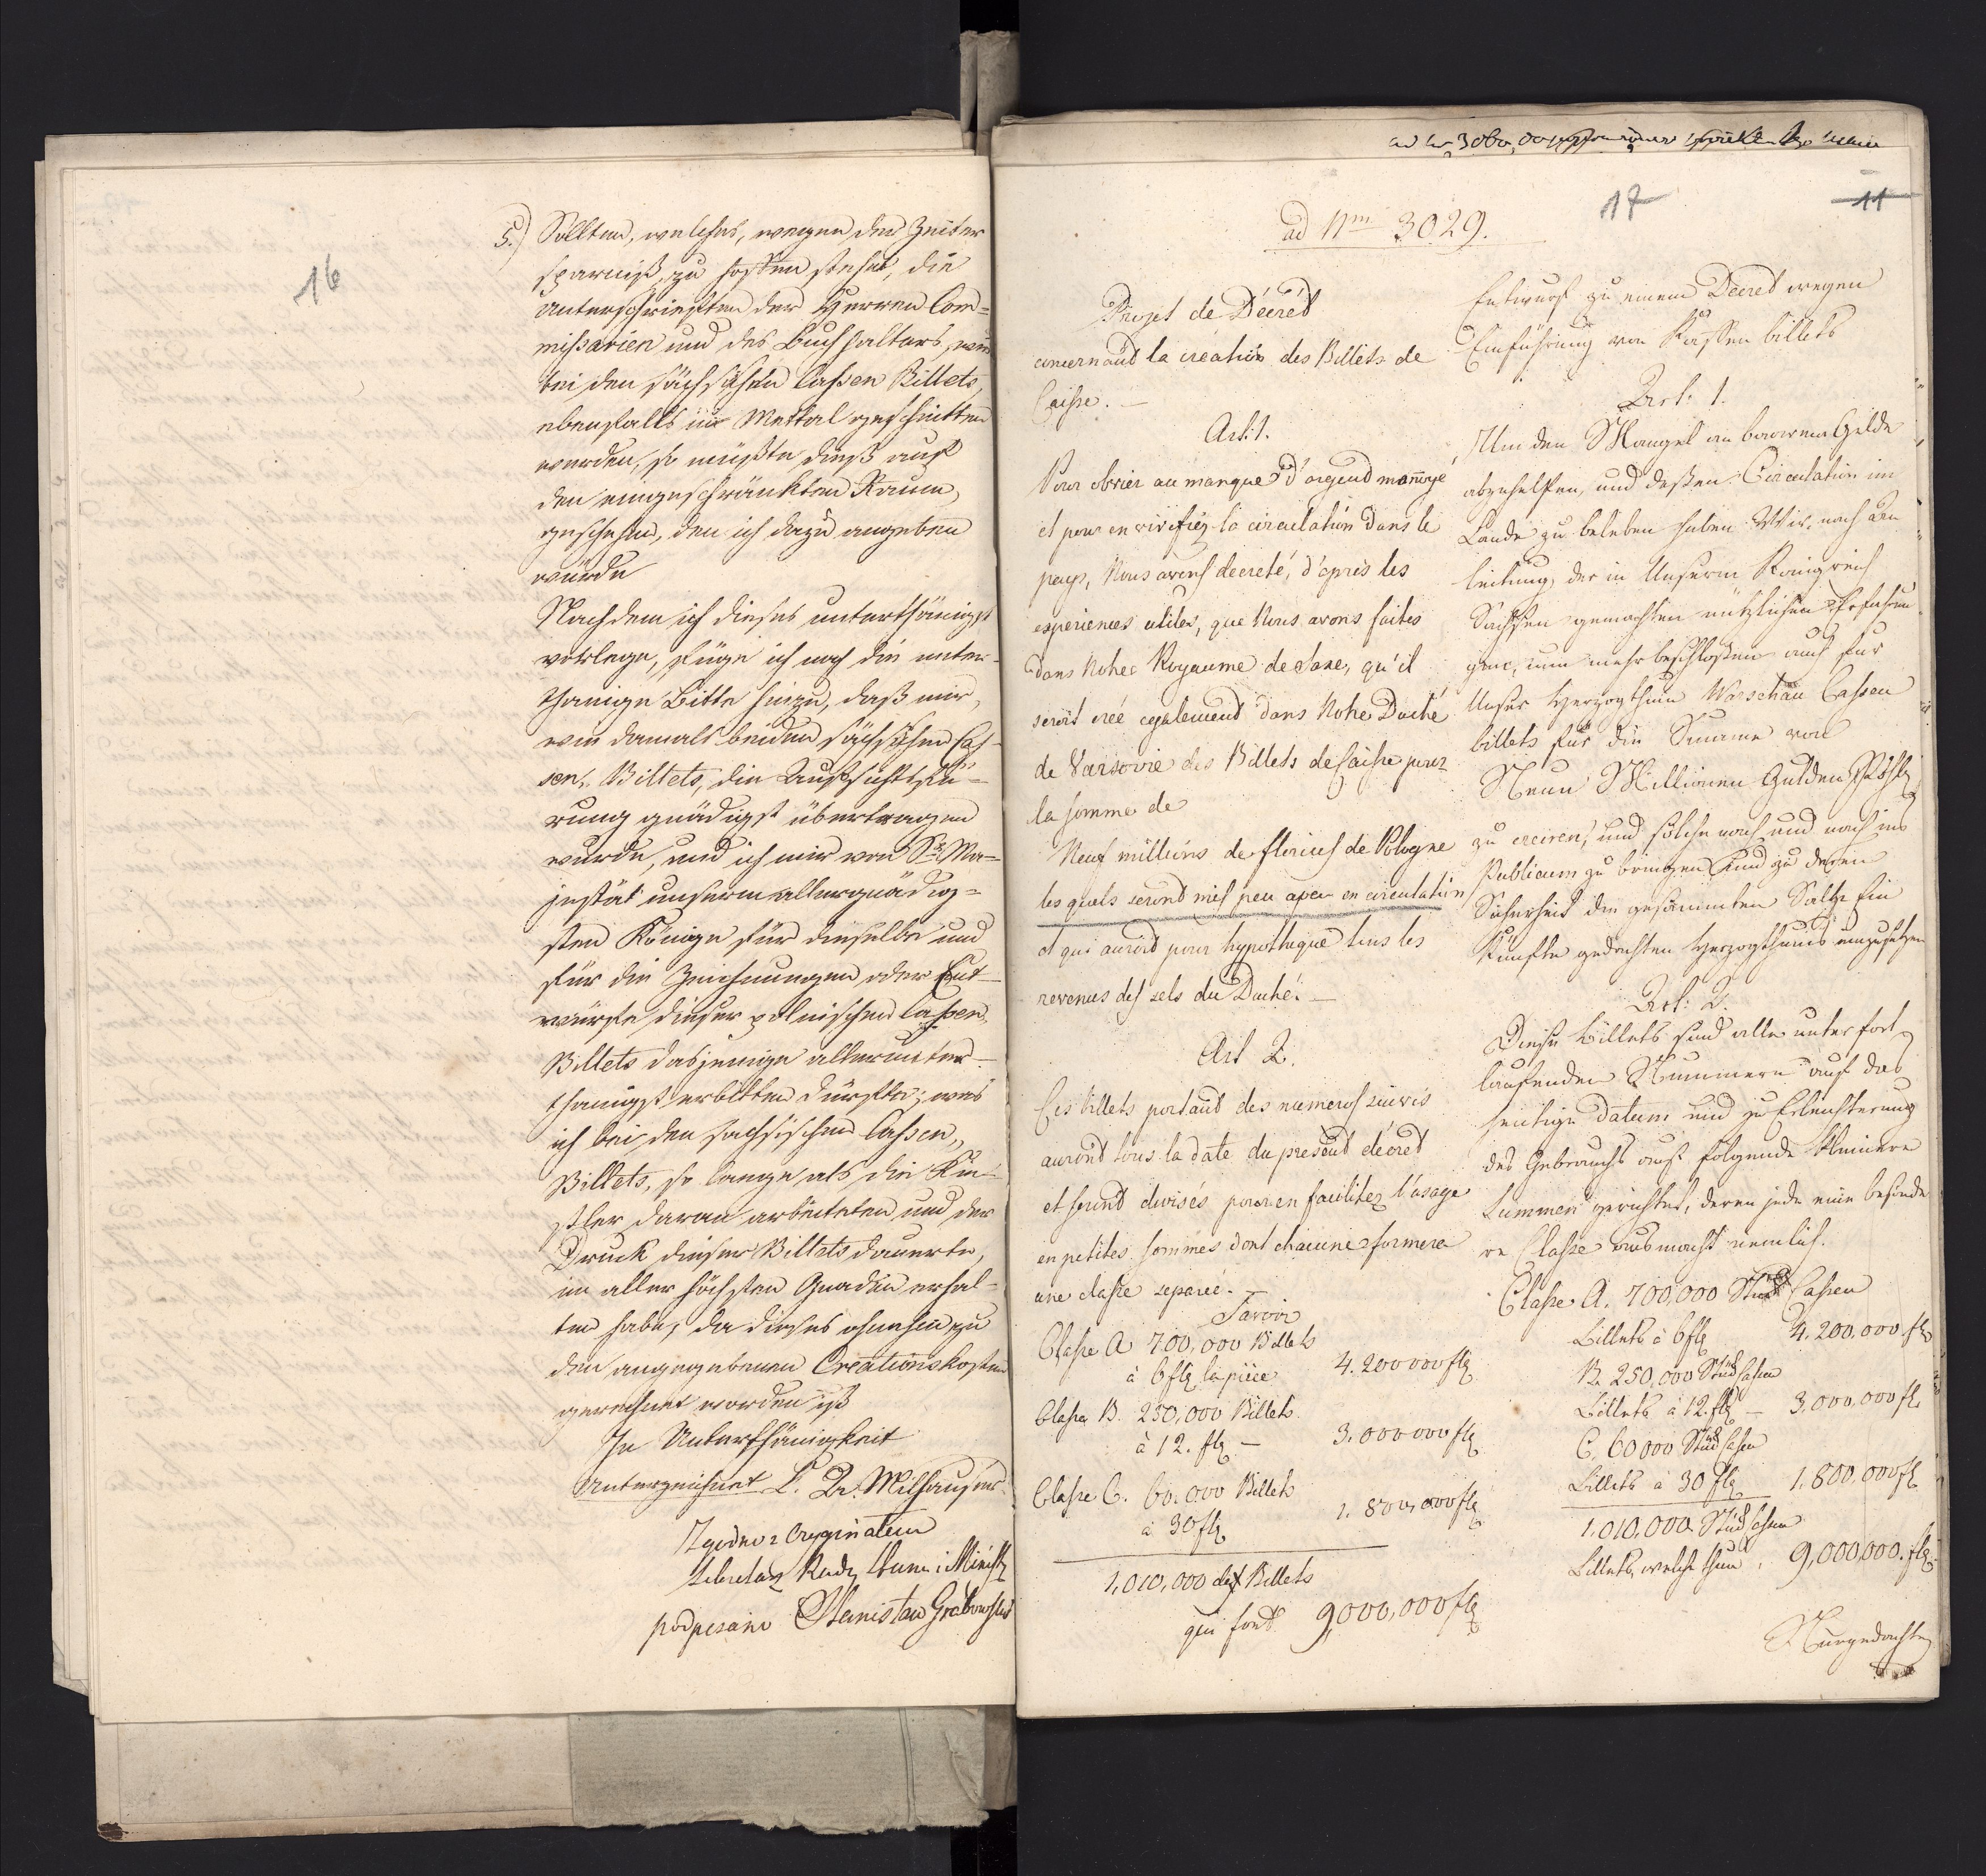 16
5.) Sollten, welches, wegen der Zeiter
sparniß, zu hoffen stehet, die
Unterschrieften der Herren Com=
mißarien und des Buchhalters, wie
bei den sächsischen Cassen Billets,
ebenfalls in Mettal geschnitten
werden, so müßte dieß auf
den eingeschränkten Raum,
geschehen, den ich dazu angeben
würde
Nachdem ich dieses unterthänigst
vorlege, füge ich noch die unter-
thänige Bitte hinzu, daß mir,
wie damals bei den sächsischen Cas-
sen, Billets, die Aufsichtsfü-
rung gnädigst übertragen
wurde, und ich mir von Sr. Ma=
jestät unserm allergnädig=
sten Könige für dieselbe und
für die Zeichnungen oder Ent-
würfe dieser polnischen Cassen,
Billets dasjenige allerunter-
thänigst erbitten dürfte; was
ich bei den sächsischen Cassen,
Billets, so lange als die Kün-
stler daran arbeiteten und der
Druck dieser Billets dauerte,
in aller höchsten Gnaden erhal-
ten habe, da dieses ohnehin zu
den angegebenen Creationskosten
gerechnet worden ist
In Unterthänigkeit
Unterzeichnet
Zgodno z Oryginałem
Sekretarz Rady Stanu i Ministr
podpisano Stanisław Grabowski
17
11
ad Nm 3029.
Projet de Décret
concernant la création des Billets de
Caisse. —
Art: 1.
Pour obvier au manque d'argend monnoyé
et pour en vivifiéz la circulation dans le
pays, Nous avons decreté, d'après les
experiences utiles, que Nous avons faites
dans Notre Royaume de Saxe, qu'il
seroit créé egalement dans Notre Duché
de Varsovie des Billets de Caisse pour
la somme de
Neuf millions de florins de Pologne
les quels seront mis peu a peu en circulation
et qui auront pour hypotheque tous les
revenus des sels du Duché. —
Art 2.
Ces billets portant des numeros suivis
auront tous la date du present décret
et seront divisés pour en facilitez l'usage
en petites sommes dont chacune formera
une classe separée.
Savoir
Classe A 700,000 Billets
à 6 flz la pièce 4.200 000 flz
Classe B. 250,000 Billets
à 12. flz — 3.000 000 flz
Classe C. 60.000 Billets
à 30 flz 1.800,000 flz
1,010,000 des Billets
qui font 9,000,000 flz
Entwurf zu einem Decret wegen
Einführung von Kassen billets
Art: 1.
Um den Mangel an baarem Gelde
abzuhelfen, und deßen Circulation im
Lande zu beleben haben Wir, nach An
leitung, der in Unserm Königreich
Sachsen gemachten nützlichen Erfahrun
gen, nun mehr beschloßen auch für
Unser Herzogthum Warschau Cassen
billets für die Summe von
Neun Millionen Gulden Pohl
zu creiren, und solche nach und nach ins
Publicum zu bringen und zu deren
Sicherheit die gesammten Saltz Ein
künfte gedachten Herzogthums einzusetzen
Art: 2.
Diese Billets sind alle unter fort
laufenden Nummern auf das
heutige Datum und zu Erleichterung
des Gebrauchs auf folgende kleinere
Summen gerichtet, deren jede eine besonde
re Classe ausmacht nemlich.
Classe A. 700,000 Stück Cassen
Billets à 6 flz 4.200,000 flz
B. 250,000 Stück Cassen
Billets à 12. flz — 3,000,000 fl.
C. 60000 Stück Cassen
Billets à 30 flz 1.800.000 fl
1,010,000. Stück Cassen
Billets, welche thun. 9,000,000. flz.